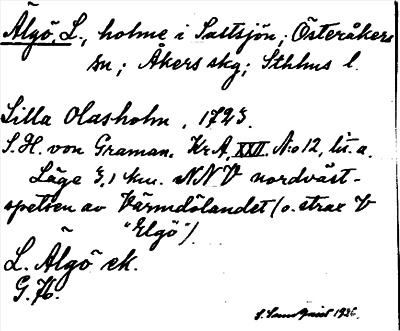 Älgö, L., holme i Saltsjön; Österåkers
sn; Åkers skg; Sthlms l.
Lilla Olasholm, 1723.
S. H. von Graman. Kr. A, XXII, N:o 12, lit. a.
Läge 3,1 km. NNV nordväst-
spetsen av Värmdölandet (o. strax V
"Elgö").
L. Älgö ek.
G. H.
S. 1936.